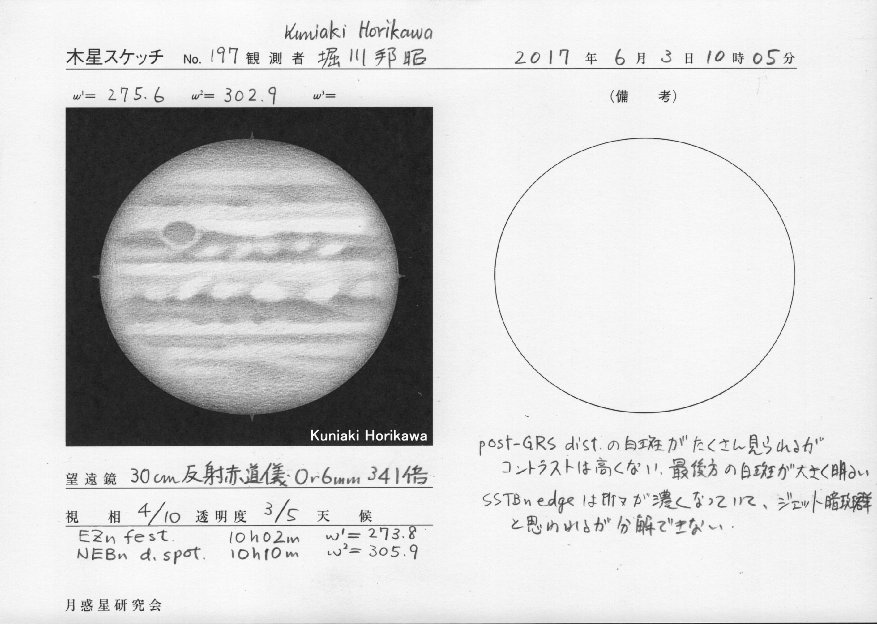 Kuniaki Horikawa
木星スケッチ No. 197 観測者 堀川邦昭 2017年 6月 3日 10時 05分
ω¹= 275.6 ω²= 302.9 ω³=
(備 考)
Kuniaki Horikawa
post-GRS dist.の白斑がたくさん見られるが
コントラストは高くない、最後方の白斑が大きく明るい
SSTBn edgeは所々が濃くなっていて、ジェット暗斑群
と思われるが分解できない.
望遠鏡 30cm反射赤道儀 Or6mm 341倍
視 相 4/10 透明度 3/5 天 候
EZn fest. 10h02m ω¹= 273.8
NEBn d. spot. 10h10m ω²= 305.9
月惑星研究会